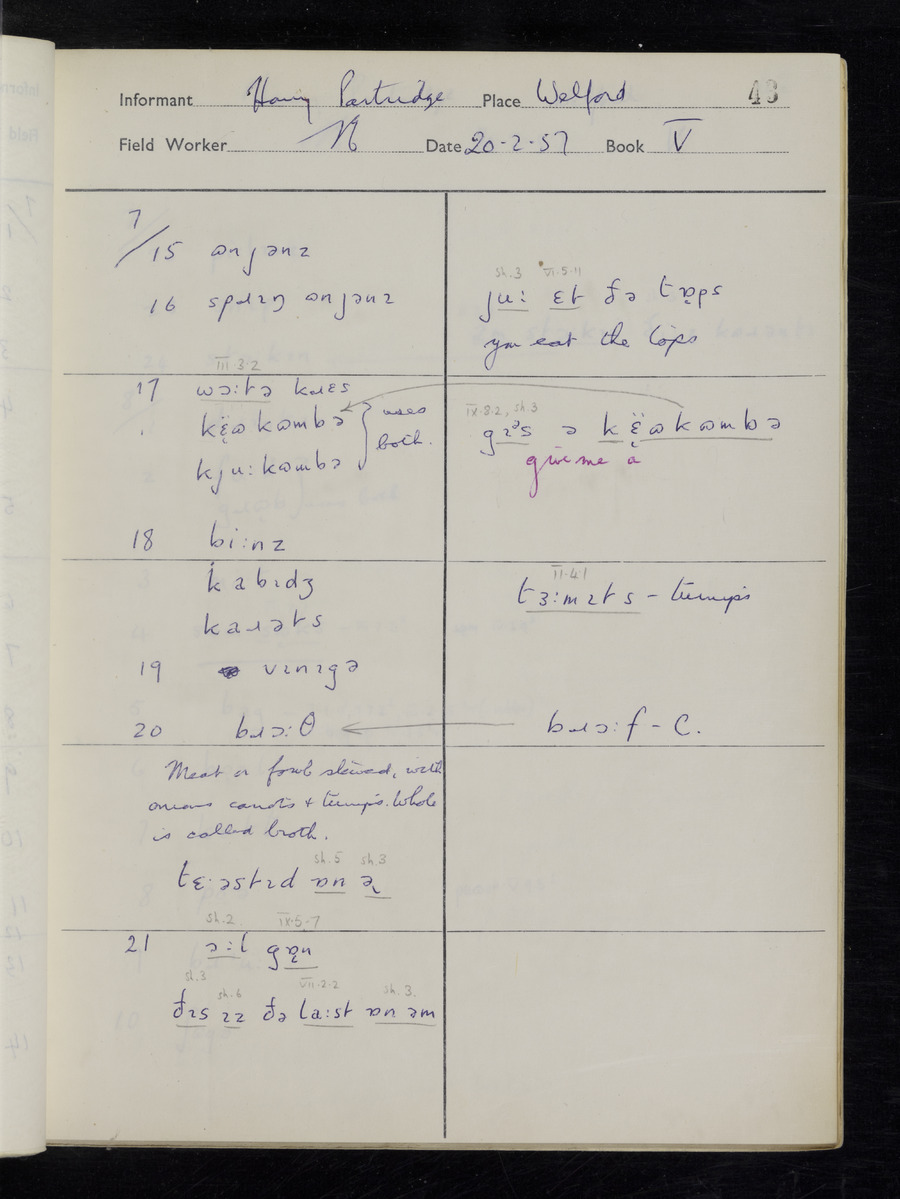 Informant Harry Partridge Place Welford 43
Field Worker N Date 20-2-57 Book V
7/15 ɷnjənz
16 spɹɪŋ ɷnjənz
sh.3 VI.5.11
ju: ɛt ðə tɒps
you eat the tops
III 3.2
17 wɔ:tə kɹɛs
kɛ̈ɷkɷmbə
kju:kɷmbə
} uses both.
IX.8.2, sh.3
gɪᵊs ə kɛ̈ɷkɷmbə
give me a
18 bi:nz
kabɪdʒ
kaɹəts
II.4.1
tɜ:mɪts - turnips
19 vɪnɪgə
20 bɹɔ:θ
bɹɔ:f - C.
Meat or fowl stewed, with
onions carrots + turnips. Whole
is called broth.
sh.5 sh.3
tɛ:əstɪd ɒn ə
sh.2. IX.5.7
21 ɔ:l gɒn
sh.3 sh.6 VII.2.2 sh.3.
ðɪs ɪz ðə la:st ɒn əm